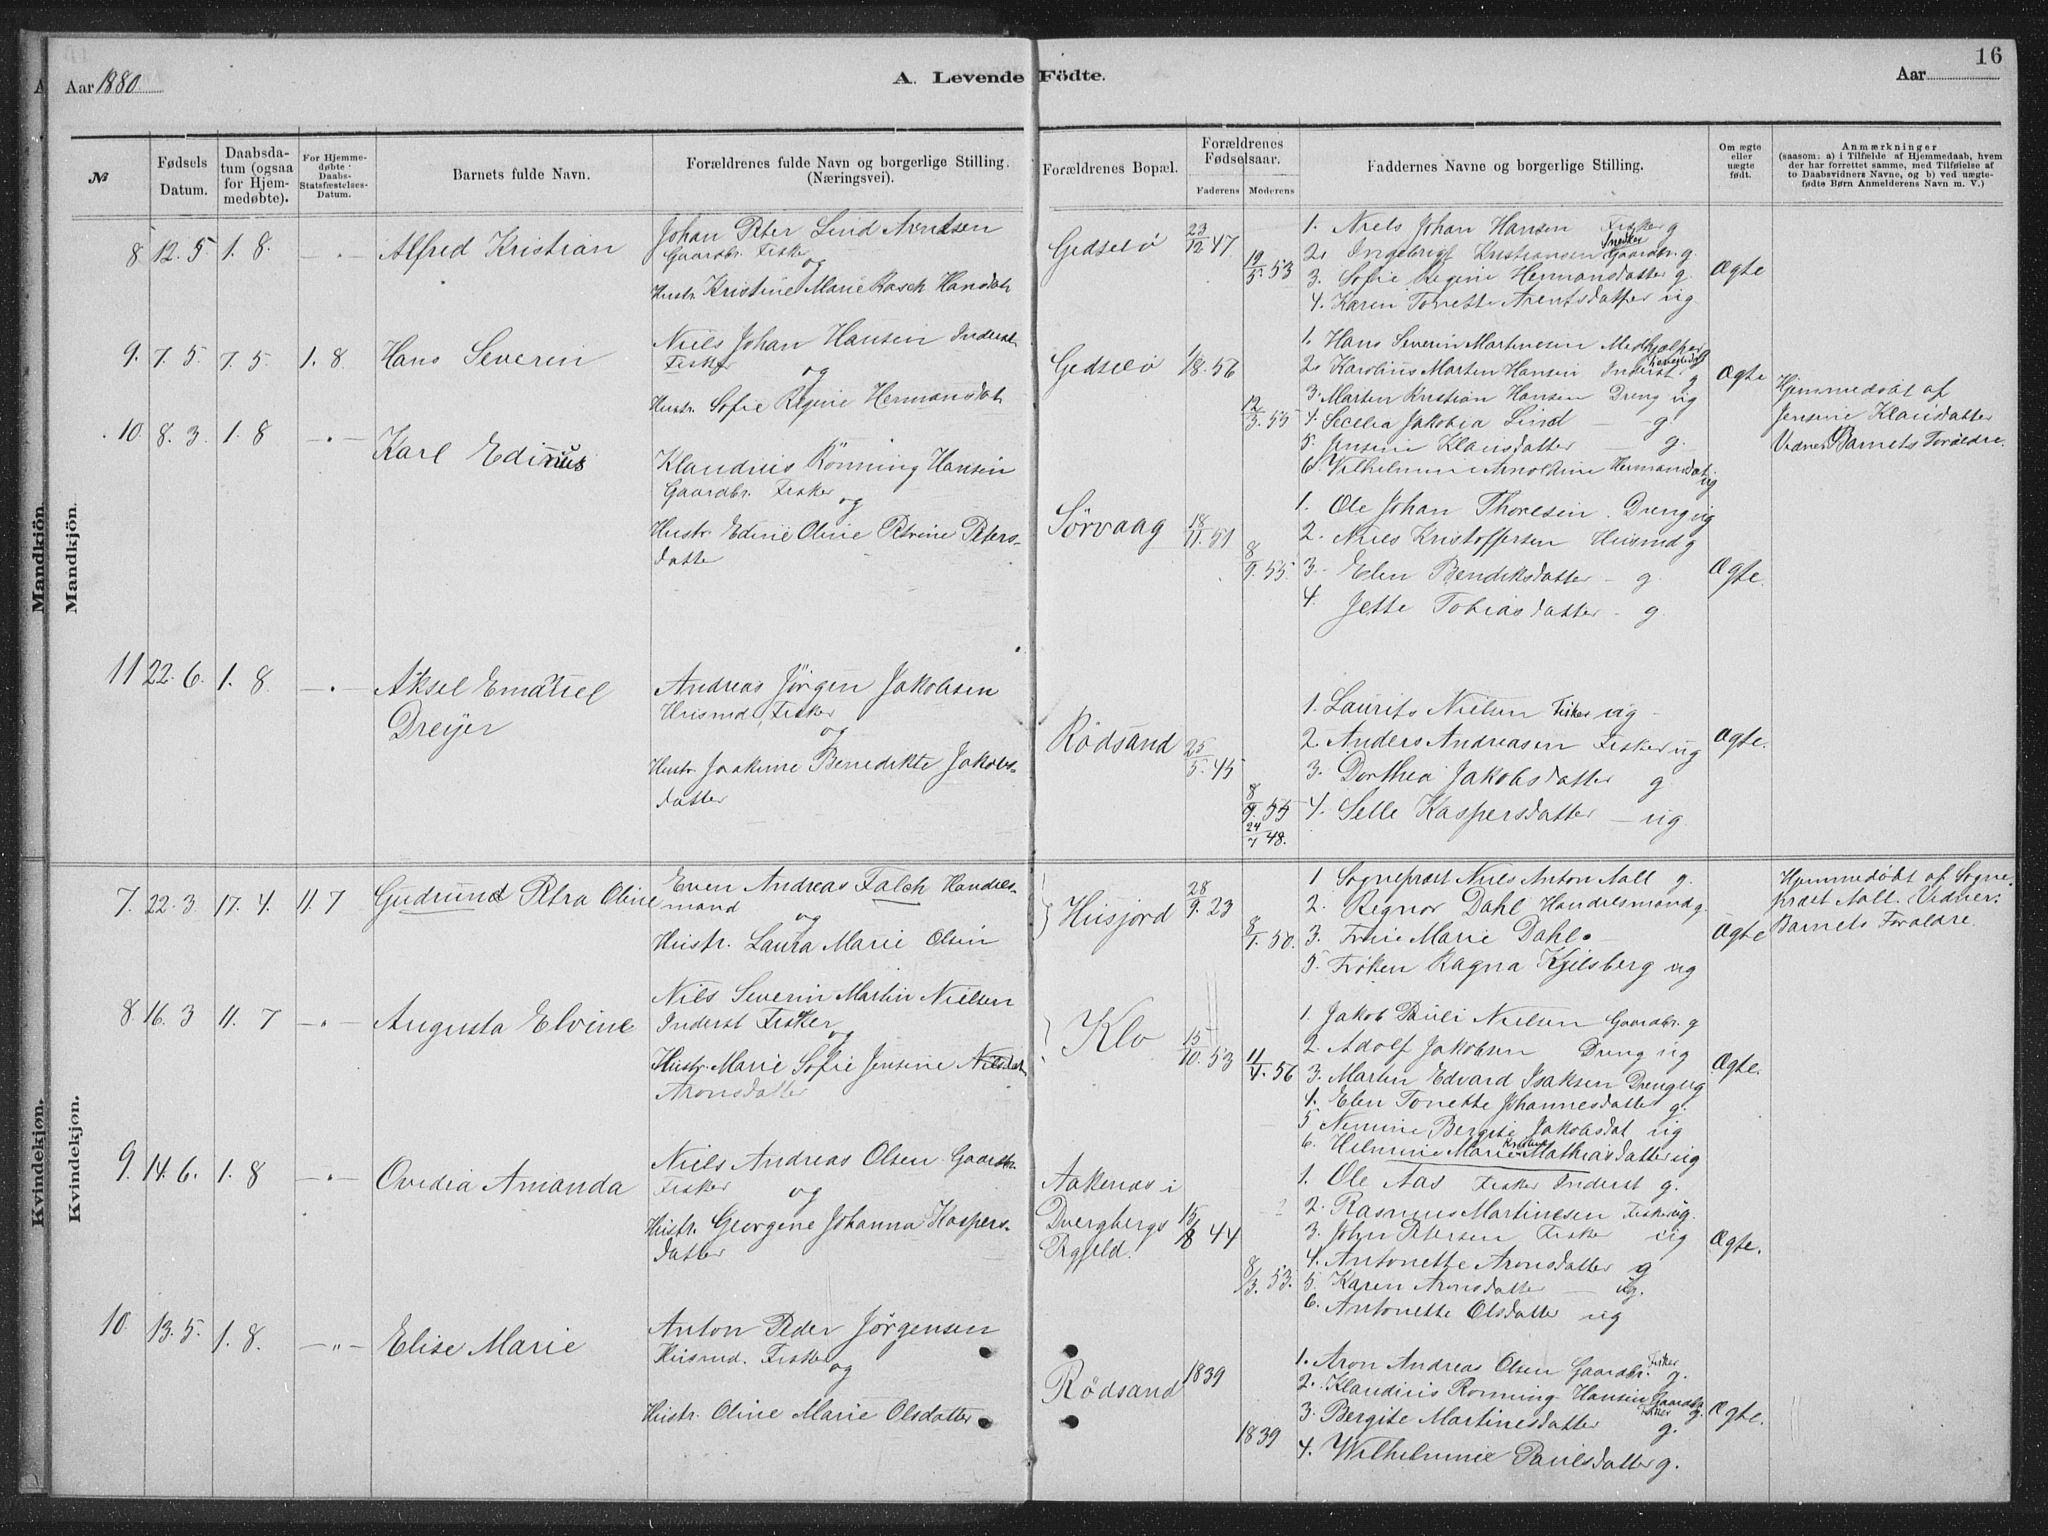 16
Aar 1880. A. Levende Födte. Aar
№ Fødsels Datum. Daabsdatum (ogsaa for Hjemmedøbte). For Hjemmedøbte Daabs-Statsfæstelses-Datum. Barnets fulde Navn. Forældrenes fulde Navn og borgerlige Stilling. (Næringsvei). Forældrenes Bopæl. Forældrenes Fødselsaar. Faderens Moderens Faddernes Navne og borgerlige Stilling. Om ægte eller uægte født. Anmærkninger (saasom: a) i Tilfælde af Hjemmedaab, hvem der har forrettet samme, med Tilføielse af Daabsvidners Navne, og b) ved uægtefødte Børn Anmelderens Navn m. V.)
Mandkjön. Mandkjön.
8 12. 5 1. 8. -"- Alfred Kristian
Johan Peter Lind Arentsen
Gaardbr. Fisker
og
Hustr. Kristine Marie Rasch Hansdat
Gedselø 23/12 47 19/5. 53
1. Niels Johan Hansen Fisker g
2. Ingebrigt Kristiansen Snedker Gaardbr. g.
3. Sofie Regine Hermansdatter g.
4. Karen Tonette Arentsdatter ug
Ægte
9. 7. 5. 7. 5. 1. 8. Hans Severin
Niels Johan Hansen Inderst
Fisker
og
Hustr. Sofie Regine Hermansdat
Gedselø 1/8. 56 12/3. 55
1. Hans Severin Martinesen Medhjælper
2. Karolius Marten Hansen Inderst g
3. Marten Kristian Hansen Dreng ug
4. Secelia Jakobia Lind - g
5. Jensine Klausdatter - g.
6. Vilhelmine Arnoldine Hermansdat ug
Ægte
Hjemmedøbt af
Jensine Klausdatter
Vidner Barnets Forældre.
10. 8. 3. 1. 8 -"- Karl Edinius
Klaudius Rønning Hansen
Gaardbr. Fisker
og
Hustr. Edine Oline Petrine Peters-
datter
Sørvaag 18/11. 51 8/9. 55
1. Ole Johan Thoresen. Dreng ug
2. Niels Kristoffersen Husmd g
3. Elen Bendiksdatter - g.
4. Jette Tobiasdatter - g.
Ægte.
11 22. 6. 1. 8. -"- Aksel Emanuel
Dreyer
Andreas Jørgen Jakobsen
Husmd, Fisker
og
Hustr. Joakime Benedikte Jakobs-
datter
Rødsand 25/5. 45 8/9. 55 24/7 48.
1. Laurits Nielsen Fisker ug -
2. Anders Andreasen Fisker ug
3. Dorthea Jakobsdatter g.
4. Selle Kaspersdatter - ug
Ægte.
Kvindekjøn. Kvindekjøn.
7. 22. 3. 17. 4. 11. 7 Gudrund Petra Oline
Even Andreas Falch Handels-
mand
og
Hustr. Laura Marie Olsen
Husjord 28/9. 23 8/1. 50.
1 Sogneprest Niels Anton Aall g.
2. Regnor Dahl Handelsmand g.
3. Frue Marie Dahl. -
5. Frøken Ragna Kjelsberg ug
Ægte
Hjemmedøbt af Sogne-
prest Aall. Vidner:
Barnets Forældre.
8. 16. 3 11. 7 -"- Augusta Elvine
Nils Severin Martin Nielsen
Inderst Fisker
og
Hustr. Marie Sofie Jensine Nilsdat
Aronsdatter
Klo 15/10. 53 11/4. 56
1. Jakob Pauli Nielsen Gaardbr. g
2. Adolf Jakobsen Dreng ug
3. Marten Edvard Isaksen Dreng ug
4. Elen Tonette Johannesdatter g.
5 Nennine Bergite Jakobsdat ug
6. Helmine Marie Kristine Mathiasdatter ug
Ægte.
9. 14. 6. 1. 8 -"- Ovedia Amanda
Niels Andreas Olsen Gaardbr.
Fisker
og
Hustr. Georgene Johanna Kaspers-
datter
Aakenæs i
Dvergbergs
Prgjeld. 15/8 44 8/3. 53.
1. Ole Aas Fisker Inderst g.
2. Rasmus Martinesen Fisker ug.
3. John Petersen Fisker ug
4. Antonette Aronsdatter g
5. Karen Aronsdatter - ug.
6. Antonette Olsdatter ug
Ægte.
10. 13. 5. 1. 8. -"- Elise Marie
Anton Peder Jørgensen
Husmd. Fisker
og
Hustr. Oline Marie Olsdatter
Rødsand 1839 1839
1. Aron Andreas Olsen Gaardbr. Fisker g.
2. Klaudius Rønning Hansen Gaardbr. Fisker g.
3. Bergite Martinesdatter g.
4. Wilhelmine Paulsdatter g.
Ægte.